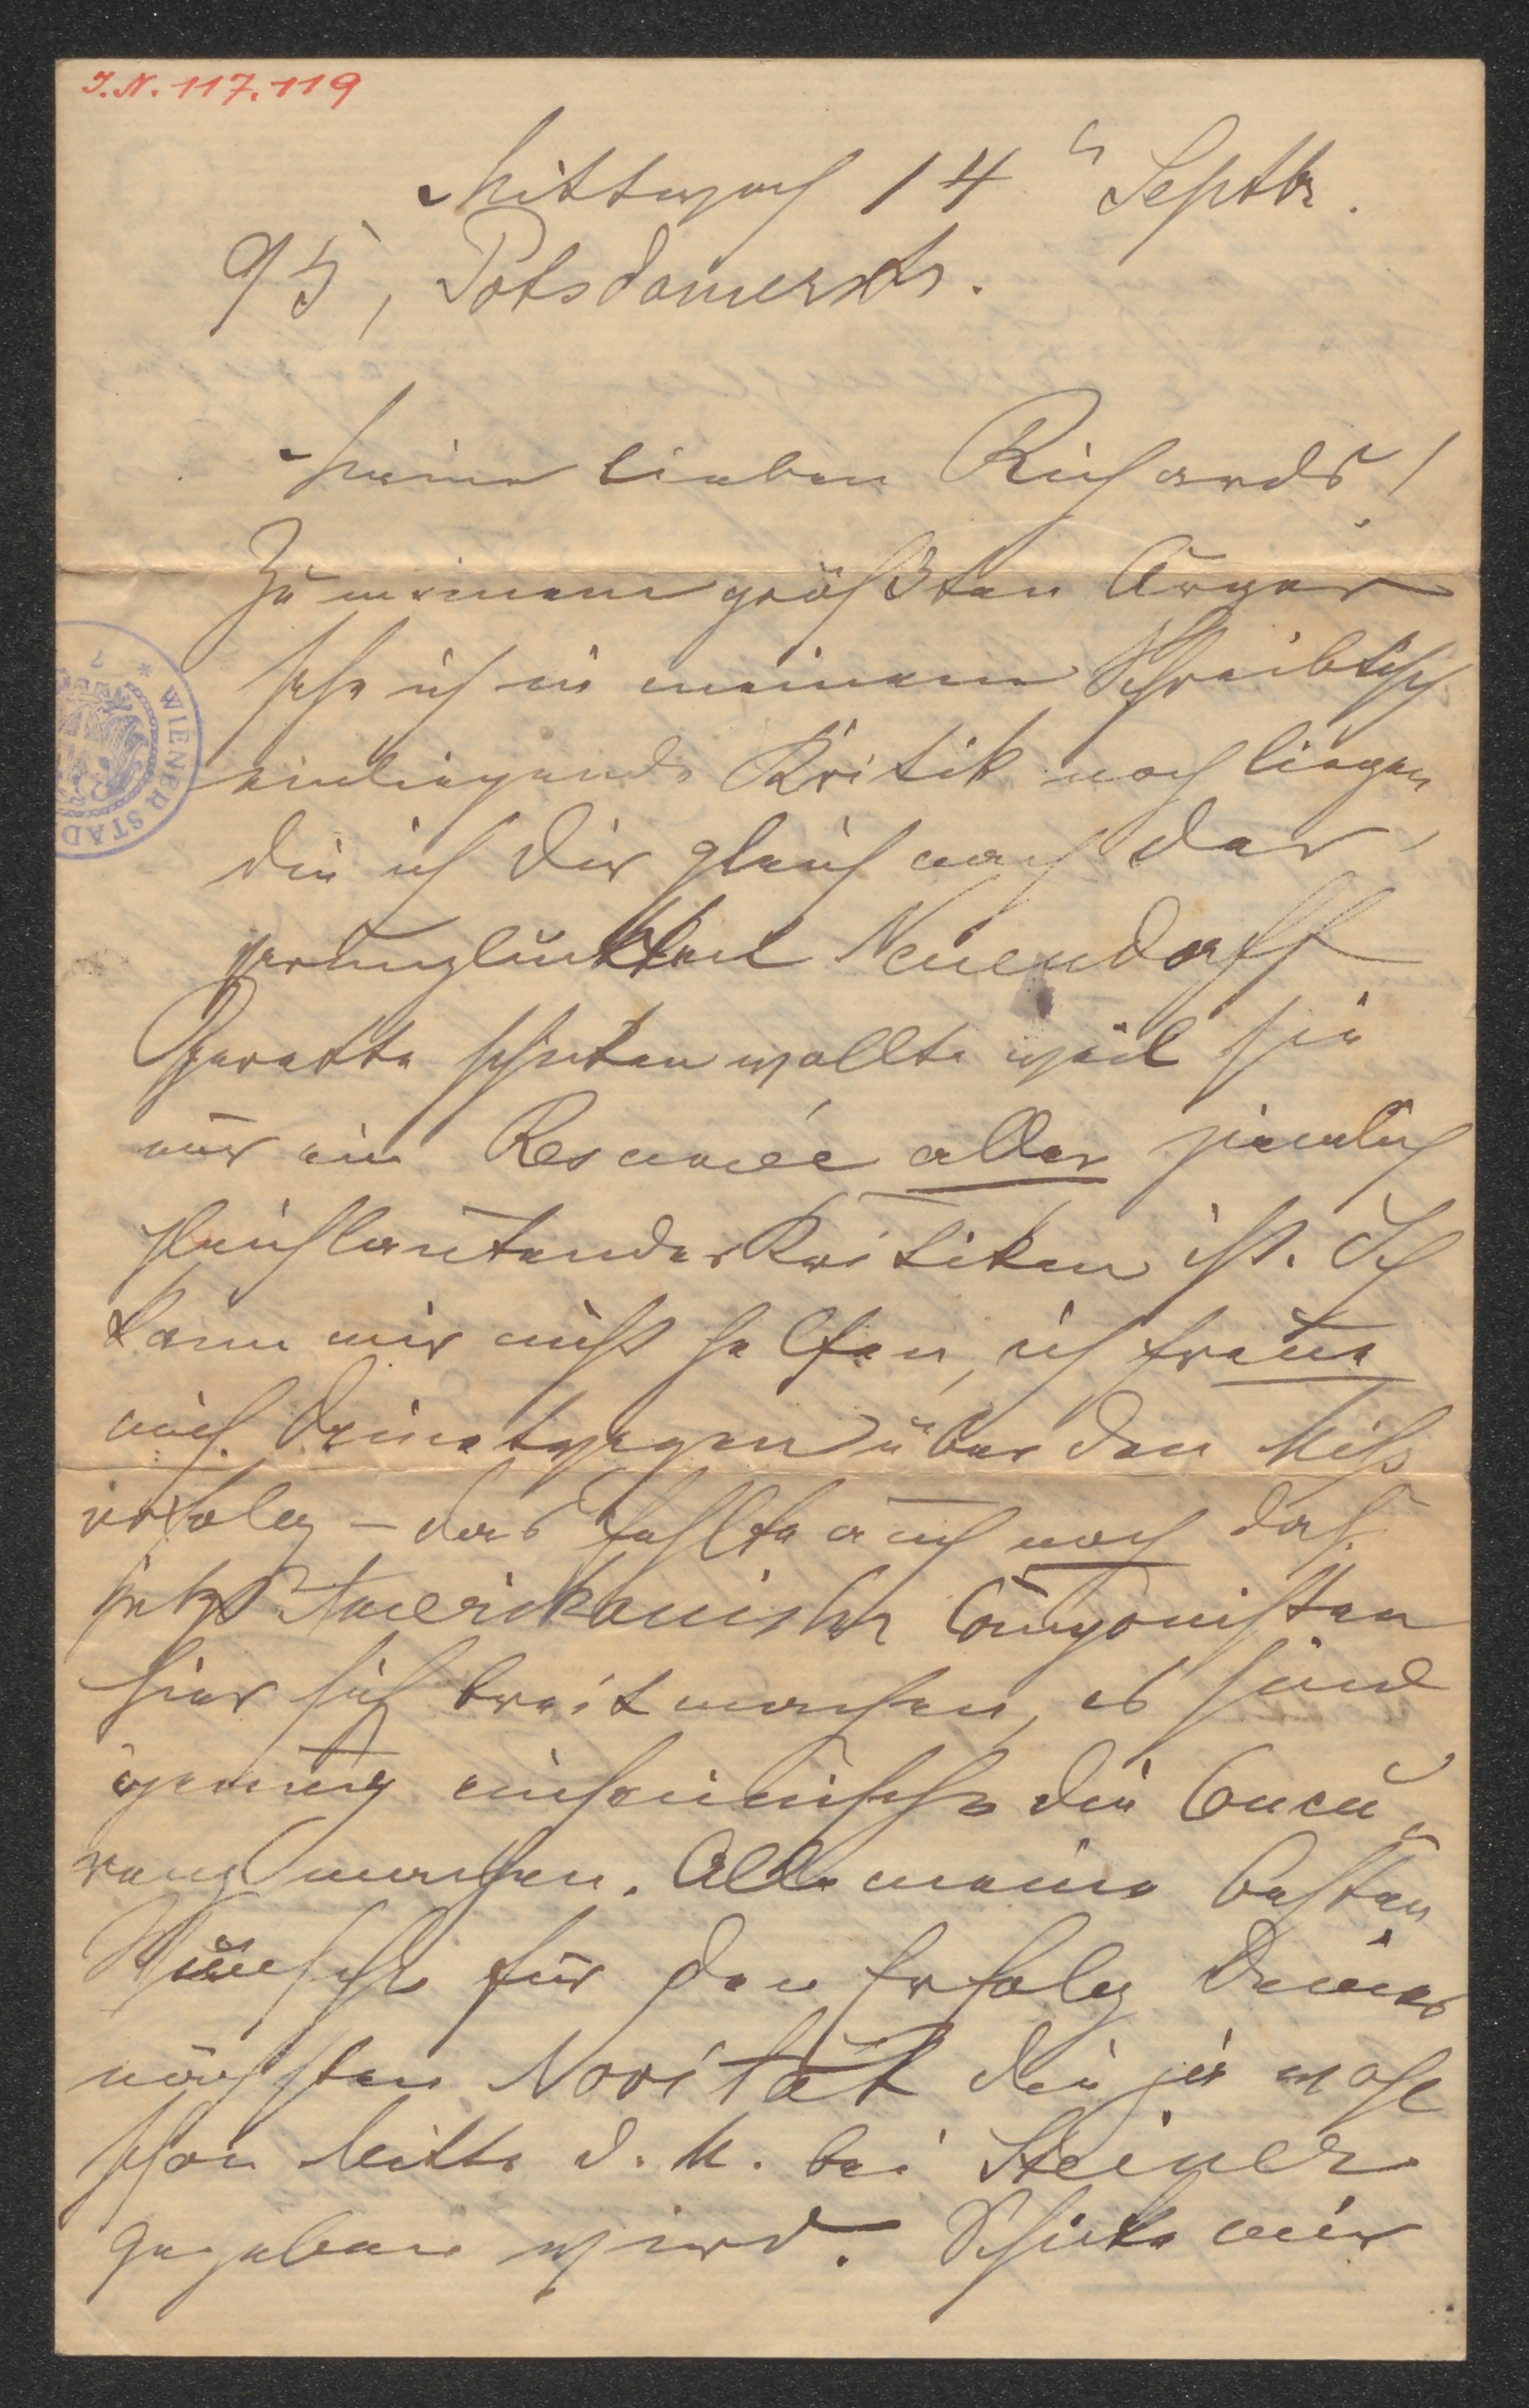 I.N. 117.119
Mittwoch 14 n Septbr.
95, Potsdamerstr.
WIENER STAD
7
Meine lieben Richards!
Zu meinem größten Ärger
sehe ich in meinem Schreibtisch
einliegende Kritik noch liegen
die ich Dir gleich nach der
verunglückten Neuendorff
Operette schicken wollte weil sie
nur ein Resumée aller ziemlich
gleichlautender Kritiken ist. Ich
kann mir nicht helfen, ich freue
mich Deinetwegen über den Miß
erfolg – das fehlte auch noch daß
jetzt Amerikanische Componisten
hier sich breit machen, es sind
genug einheimische die Concu
renz machen. Alle meine besten
Wünsche für den Erfolg Deiner
nächsten Novität die ja wohl
schon Mitte d. M. bei Steiner
gegeben wird. Schicke mir